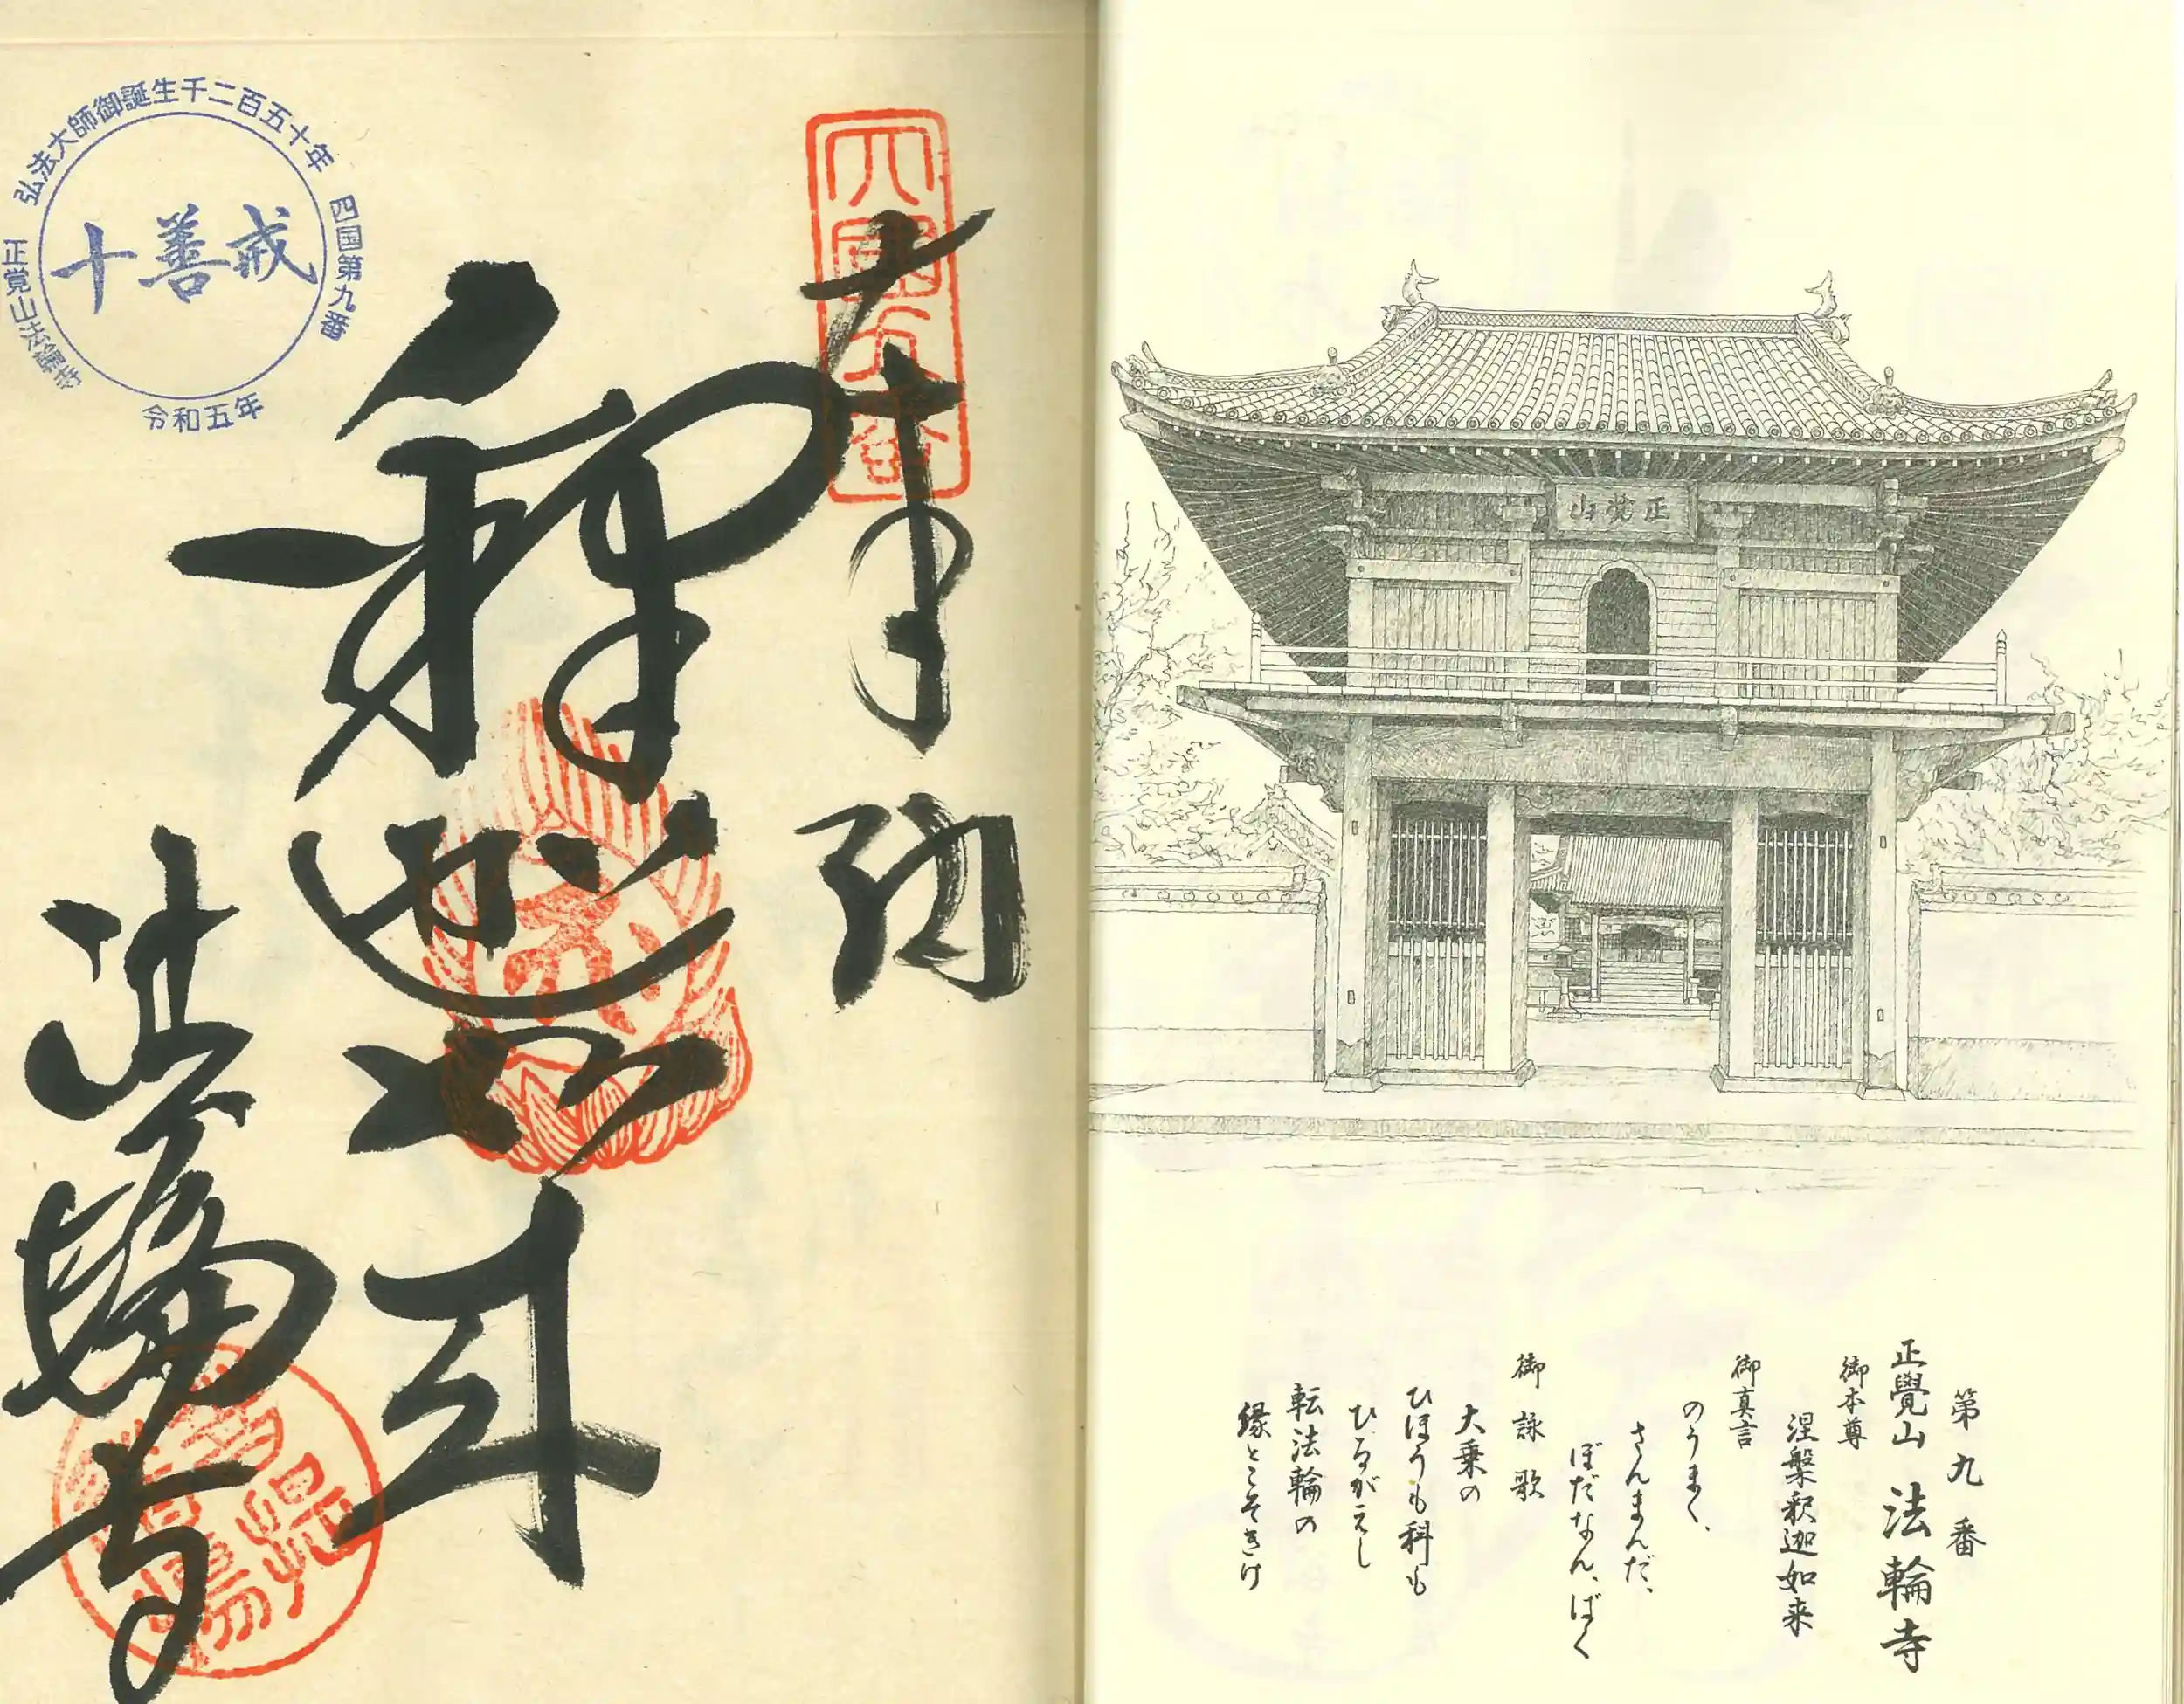 第九番
正覺山 法輪寺
御本尊
涅槃釈迦如来
御真言
のうまく、
さんまんだ、
ぼだなん、ばく
御詠歌
大乗の
ひほうも科も
ひるがえし
転法輪の
縁とこそきけ
正覚山
奉納
法輪寺
弘法大師御誕生千二百五十年
四国第九番
正覚山法輪寺
十善戒
令和五年